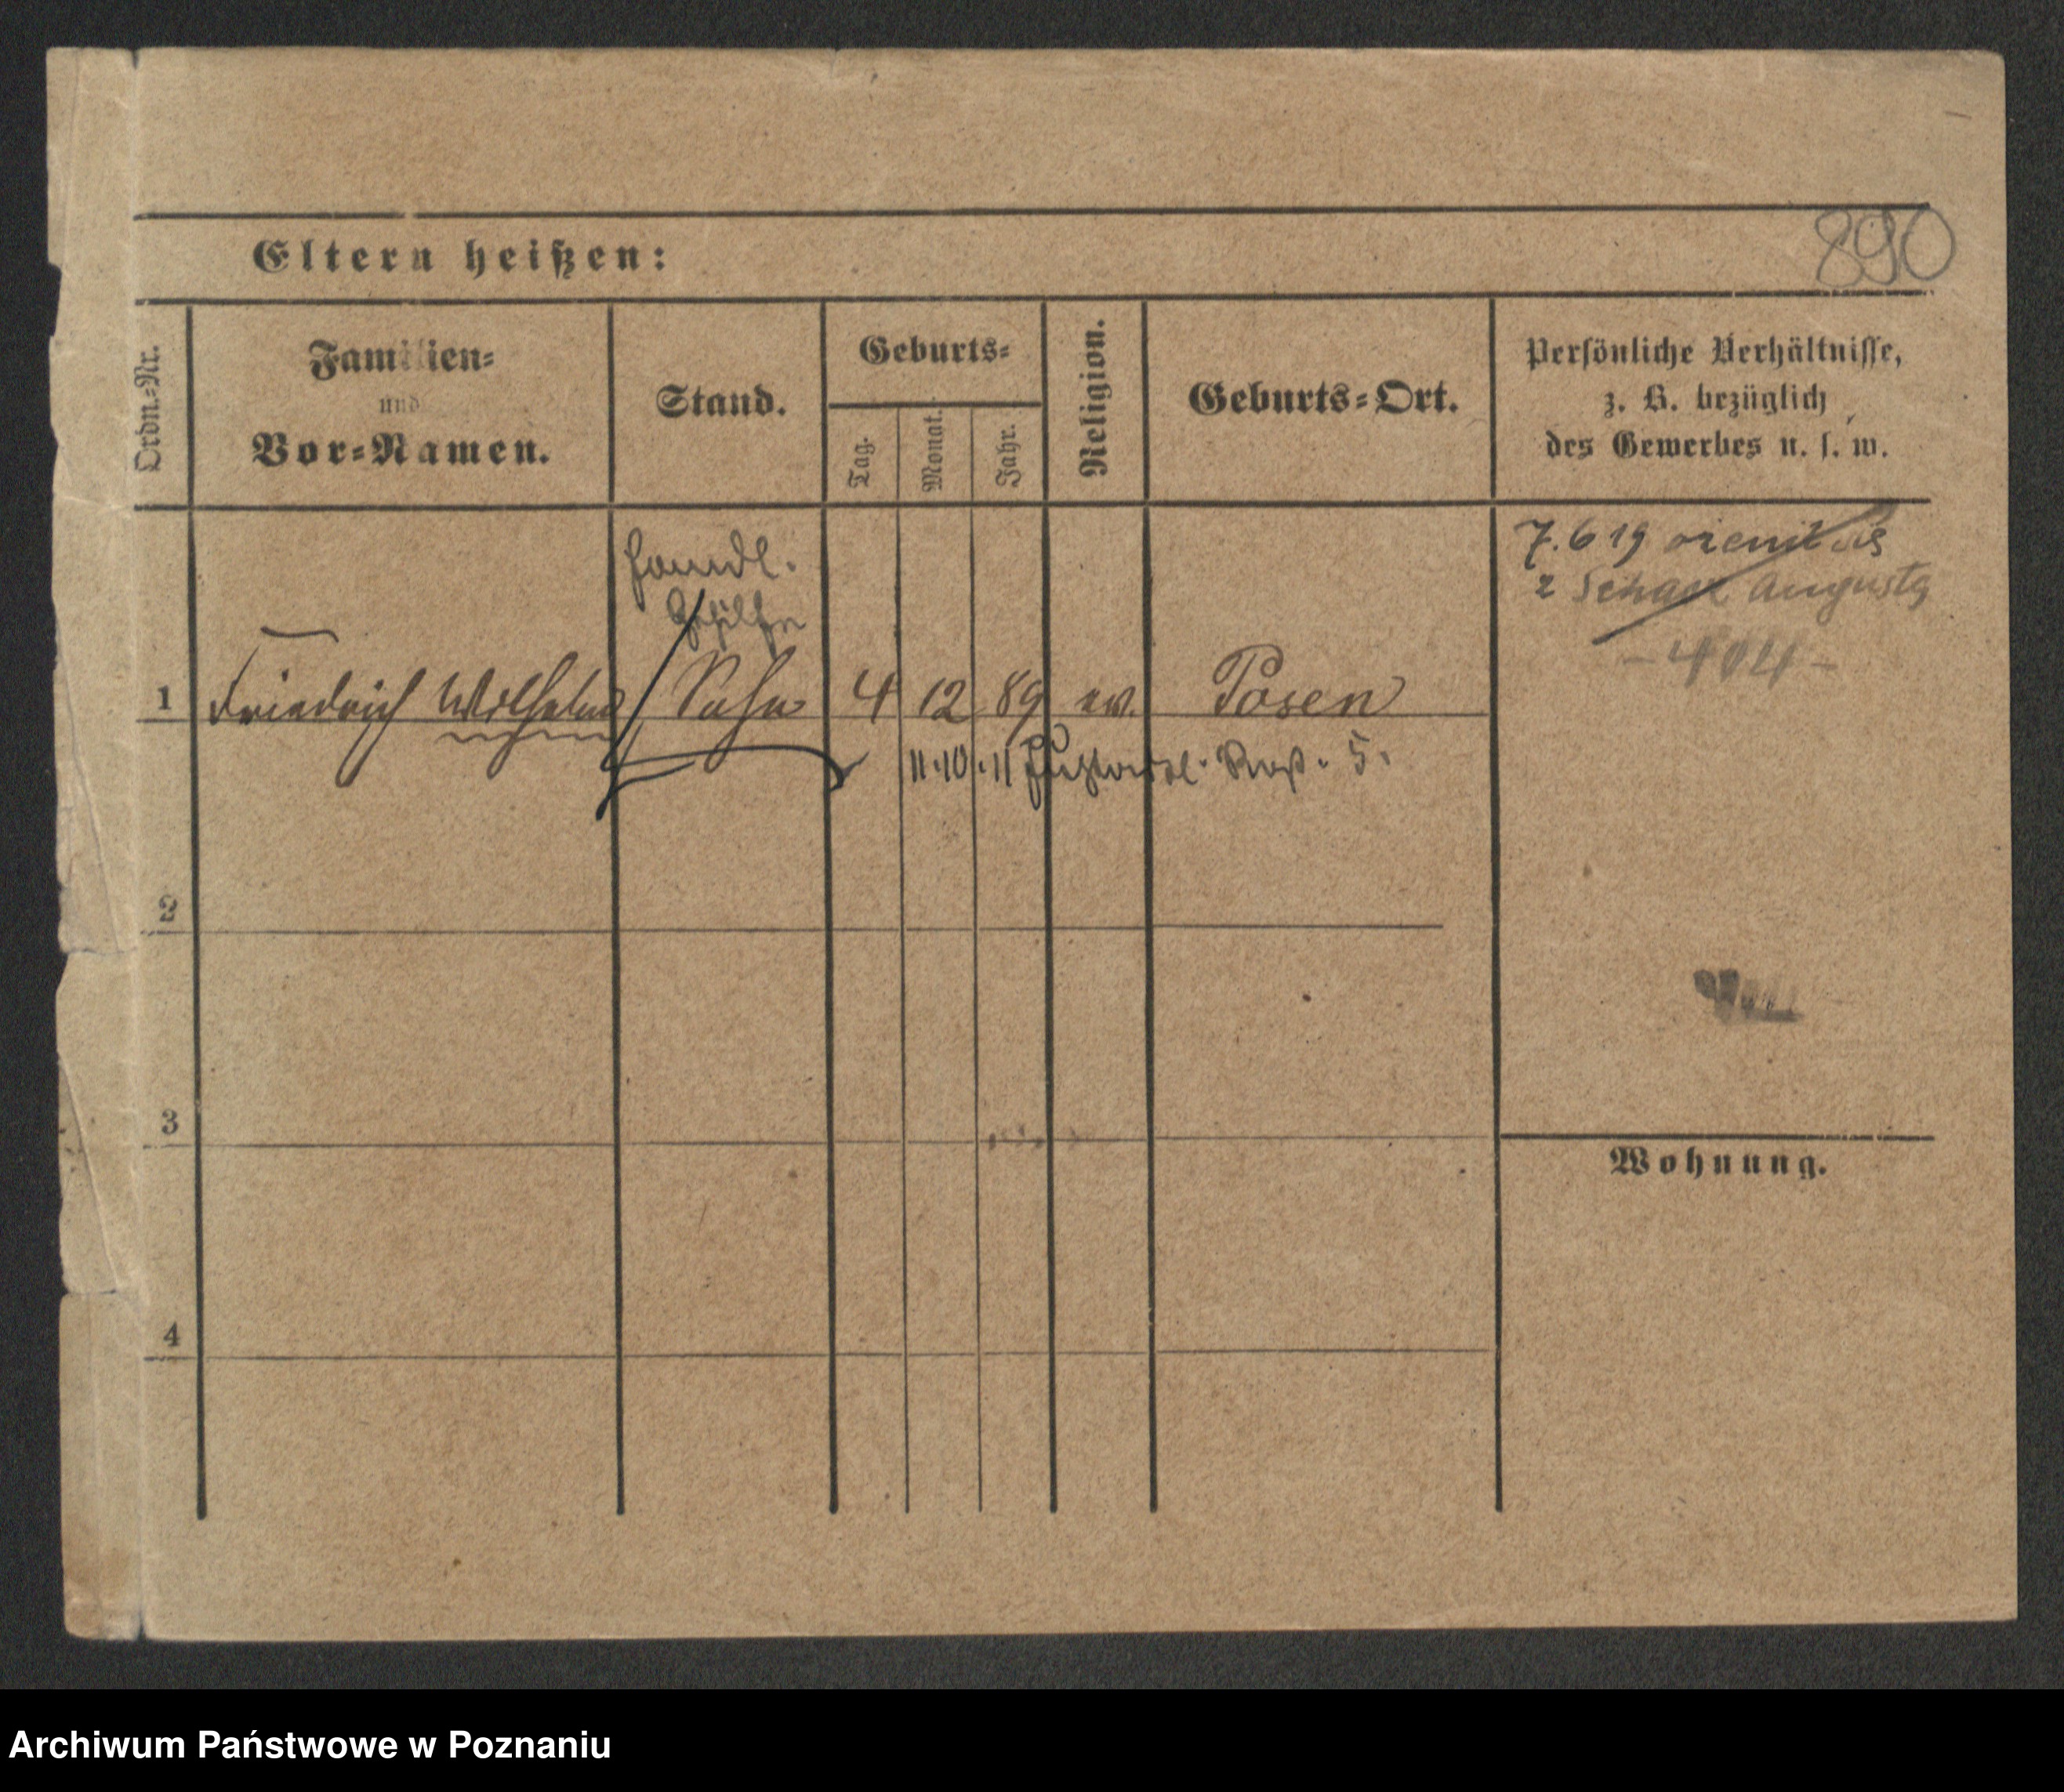 890
Eltern heißen:
Ordn.-Nr.
Familien-
und
Vor-Namen.
Stand.
Geburts-
Tag.
Monat.
Jahr.
Religion.
Geburts-Ort.
Persönliche Verhältnisse,
z. B. bezüglich
des Gewerbes u. s. w.
7. 6 19
2 August
Handl.
Gehilfe
1 Friedrich Wilhelm Sohn 4 12 89 ev. Posen
11.10.11 5.
2
3
Wohnung.
4
Archiwum Państwowe w Poznaniu